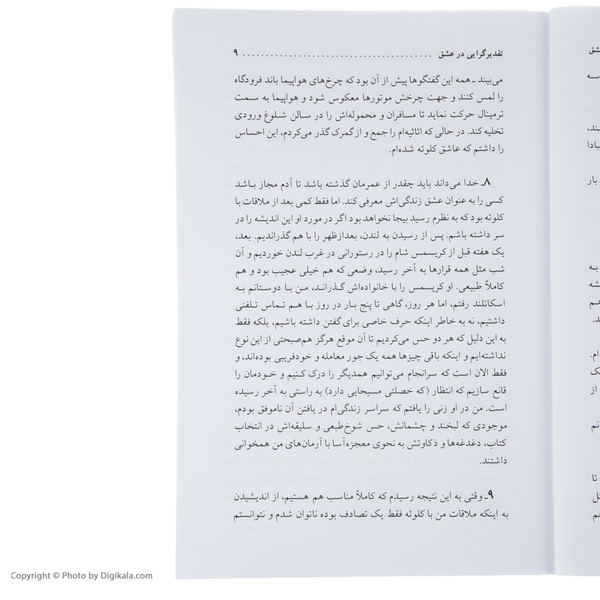 تقدیرگرایی در عشق ........................................ ۹
می‌بیند ـ همه این گفتگوها پیش از آن بود که چرخ‌های هواپیما باند فرودگاه
را لمس کنند و جهت چرخش موتورها معکوس شود و هواپیما به سمت
ترمینال حرکت نماید تا مسافران و محموله‌اش را در سالن شلوغ ورودی
تخلیه کند. در حالی که اثاثیه‌ام را جمع و از گمرک گذر می‌کردم، این احساس
را داشتم که عاشق کلوئه شده‌ام.
۸ـ خدا می‌داند باید چقدر از عمرمان گذشته باشد تا آدم مجاز باشد
کسی را به عنوان عشق زندگی‌اش معرفی کند. اما فقط کمی بعد از ملاقات با
کلوئه بود که به نظرم رسید بیجا نخواهد بود اگر در مورد او این اندیشه را در
سر داشته باشم. پس از رسیدن به لندن، بعدازظهر را با هم گذراندیم. بعد،
یک هفته قبل از کریسمس شام را در رستورانی در غرب لندن خوردیم و آن
شب مثل همه قرارها به آخر رسید، وضعی که هم خیلی عجیب بود و هم
کاملاً طبیعی. او کریسمس را با خانواده‌اش گذراند، من با دوستانم به
اسکاتلند رفتم، اما هر روز، گاهی تا پنج بار در روز با هم تماس تلفنی
داشتیم، نه به خاطر اینکه حرف خاصی برای گفتن داشته باشیم، بلکه فقط
به این دلیل که هر دو حس می‌کردیم تا آن موقع هرگز هم‌صحبتی از این نوع
نداشته‌ایم و اینکه باقی چیزها همه یک جور معامله و خودفریبی بوده‌اند، و
فقط الان است که سرانجام می‌توانیم همدیگر را درک کنیم و خودمان را
قانع سازیم که انتظار (که خصلتی مسیحایی دارد) به راستی به آخر رسیده
است. من در او زنی را یافتم که سراسر زندگی‌ام در یافتن آن ناموفق بودم،
موجودی که لبخند و چشمانش، حس شوخ‌طبعی و سلیقه‌اش در انتخاب
کتاب، دغدغه‌ها و ذکاوتش به نحوی معجزه‌آسا با آرمان‌های من همخوانی
داشتند.
۹ـ وقتی به این نتیجه رسیدم که کاملاً مناسب هم هستیم، از اندیشیدن
به اینکه ملاقات من با کلوئه فقط یک تصادف بوده ناتوان شدم و نتوانستم
Copyright © Photo by Digikala.com